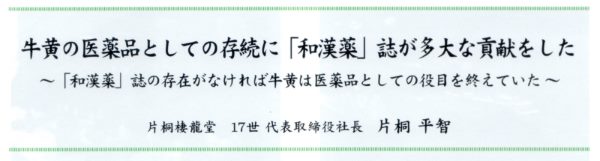 牛黄の医薬品としての存続に「和漢薬」誌が多大な貢献をした
～「和漢薬」誌の存在がなければ牛黄は医薬品としての役目を終えていた～
片桐棲龍堂　17世 代表取締役社長　片桐 平智